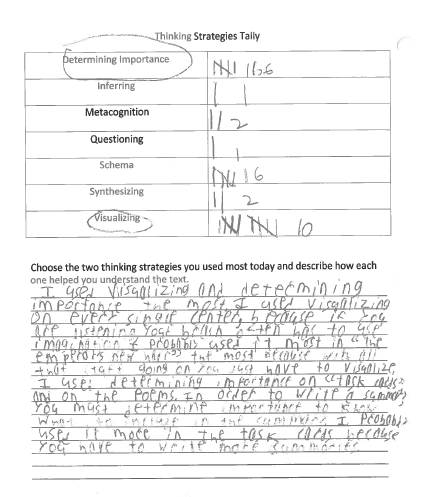 Thinking Strategies Tally
Determining Importance 6
Inferring 1
Metacognition 2
Questioning 1
Schema 6
Synthesizing 2
Visualizing 10
Choose the two thinking strategies you used most today and describe how each
one helped you understand the text.
I used Visualizing and determining
importance the most. I used Visualizing
on every single center, because if you
are listening your brain often has to use
imagination I probably used it most in "the
emperors new hair" the most because with all
that stuff going on you just have to Visualize.
I used determining importance on "task cards"
and on the Poems. In order to write a summary
You must determine importance to know
what to include in the summary. I Probably
used it more in the task cards because
You have to write more summaries